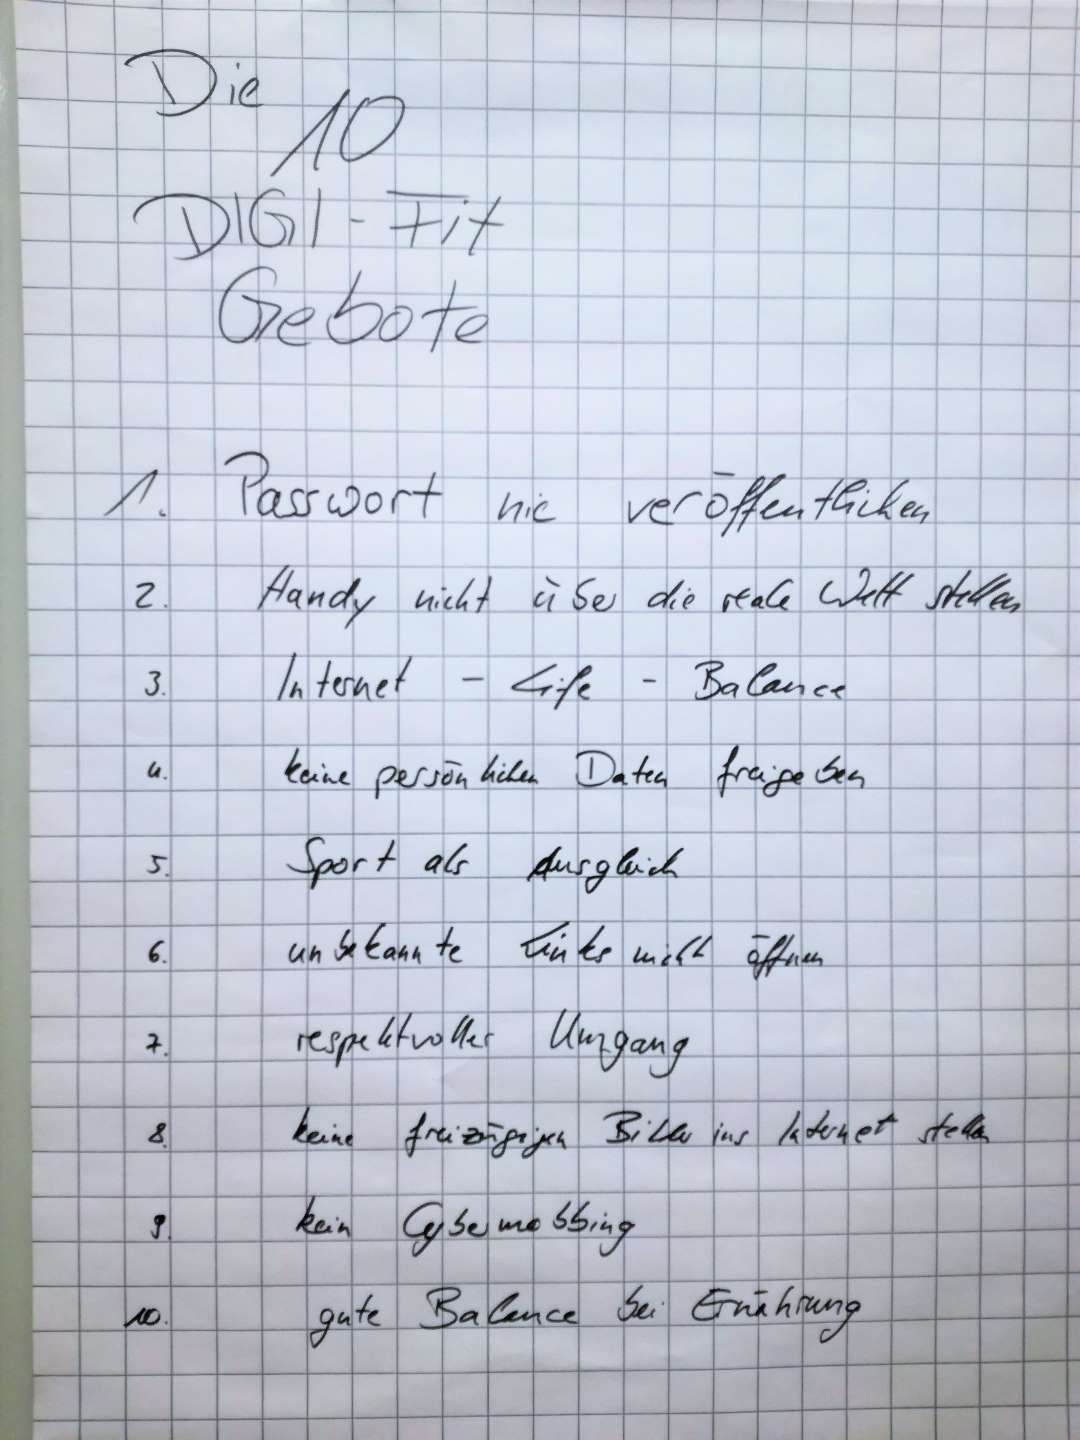 Die
10
DIGI - Fit
Gebote
1. Passwort nie veröffentlichen
2. Handy nicht über die reale Welt stellen
3. Internet - Life - Balance
4. keine persönlichen Daten freigeben
5. Sport als Ausgleich
6. unbekannte Links nicht öffnen
7. respektvoller Umgang
8. keine freizügigen Bilder ins Internet stellen
9. kein Cybermobbing
10. gute Balance bei Ernährung